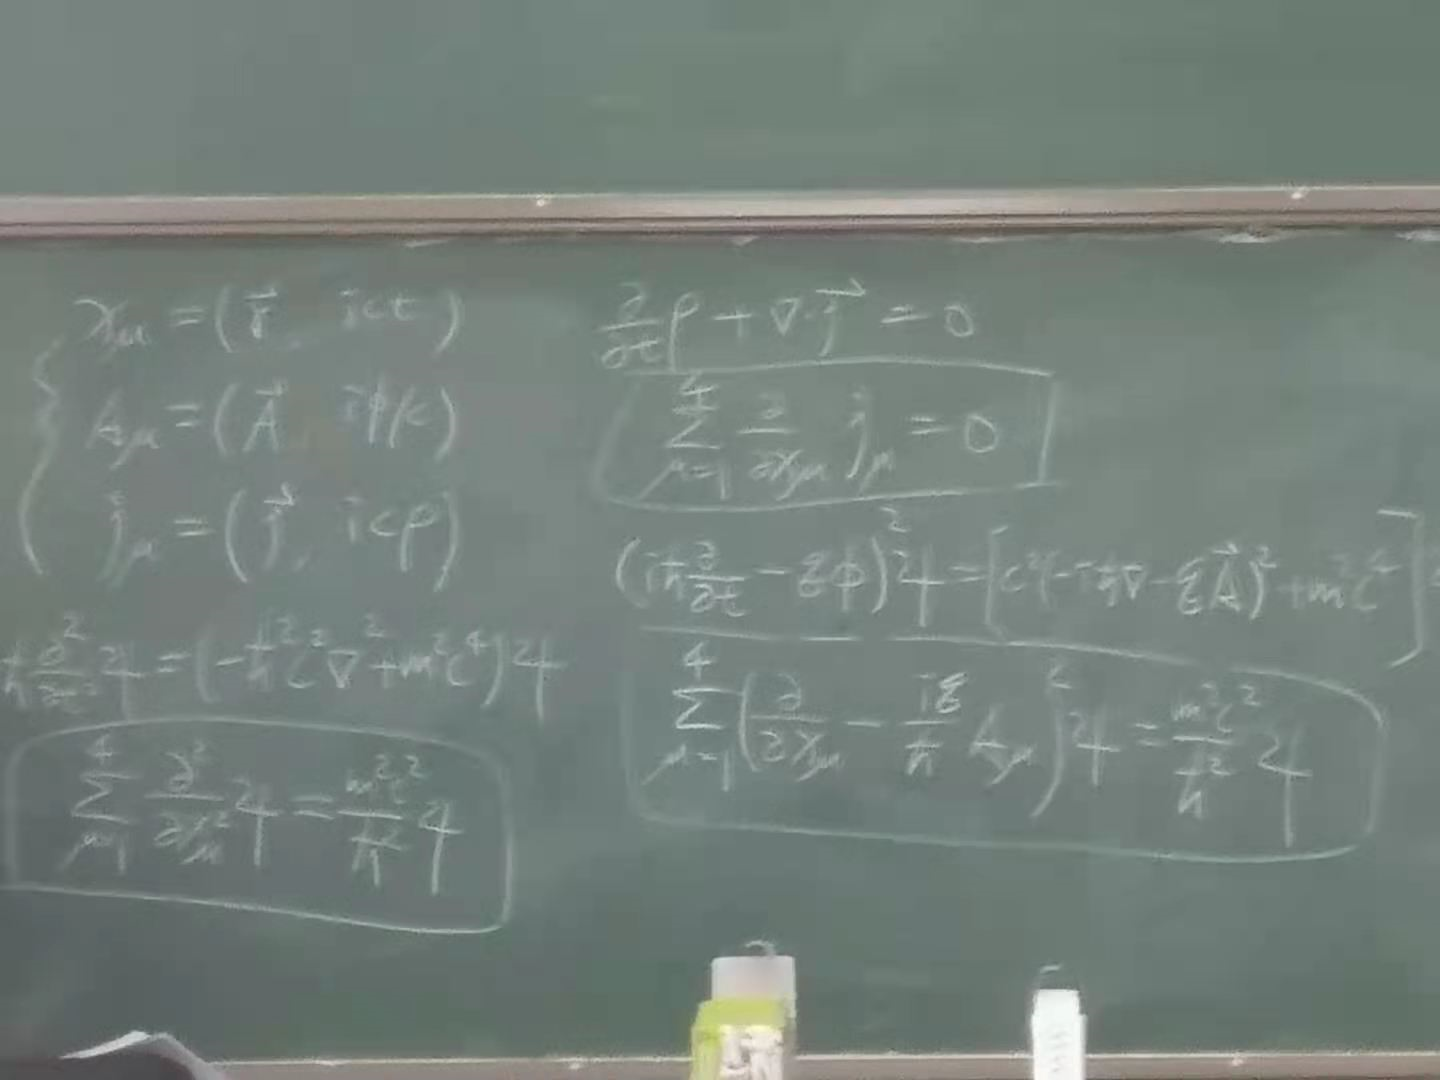 xμ = (r⃗ ict)
Aμ = (A⃗ iφ/c)
jμ = (j⃗, icρ)
ħ ∂²/∂t² ψ = (-ħ²c²∇² + m²c⁴)ψ
∑_{μ=1}^{4} ∂²/∂xμ² ψ = m²c²/ħ² ψ
∂/∂t ρ + ∇·j⃗ = 0
∑_{μ=1}^{4} ∂/∂xμ jμ = 0
(iħ ∂/∂t - qφ)² ψ = [c²(-iħ∇ - qA⃗)² + m²c⁴]
∑_{μ=1}^{4} (∂/∂xμ - iq/ħ Aμ)² ψ = m²c²/ħ² ψ